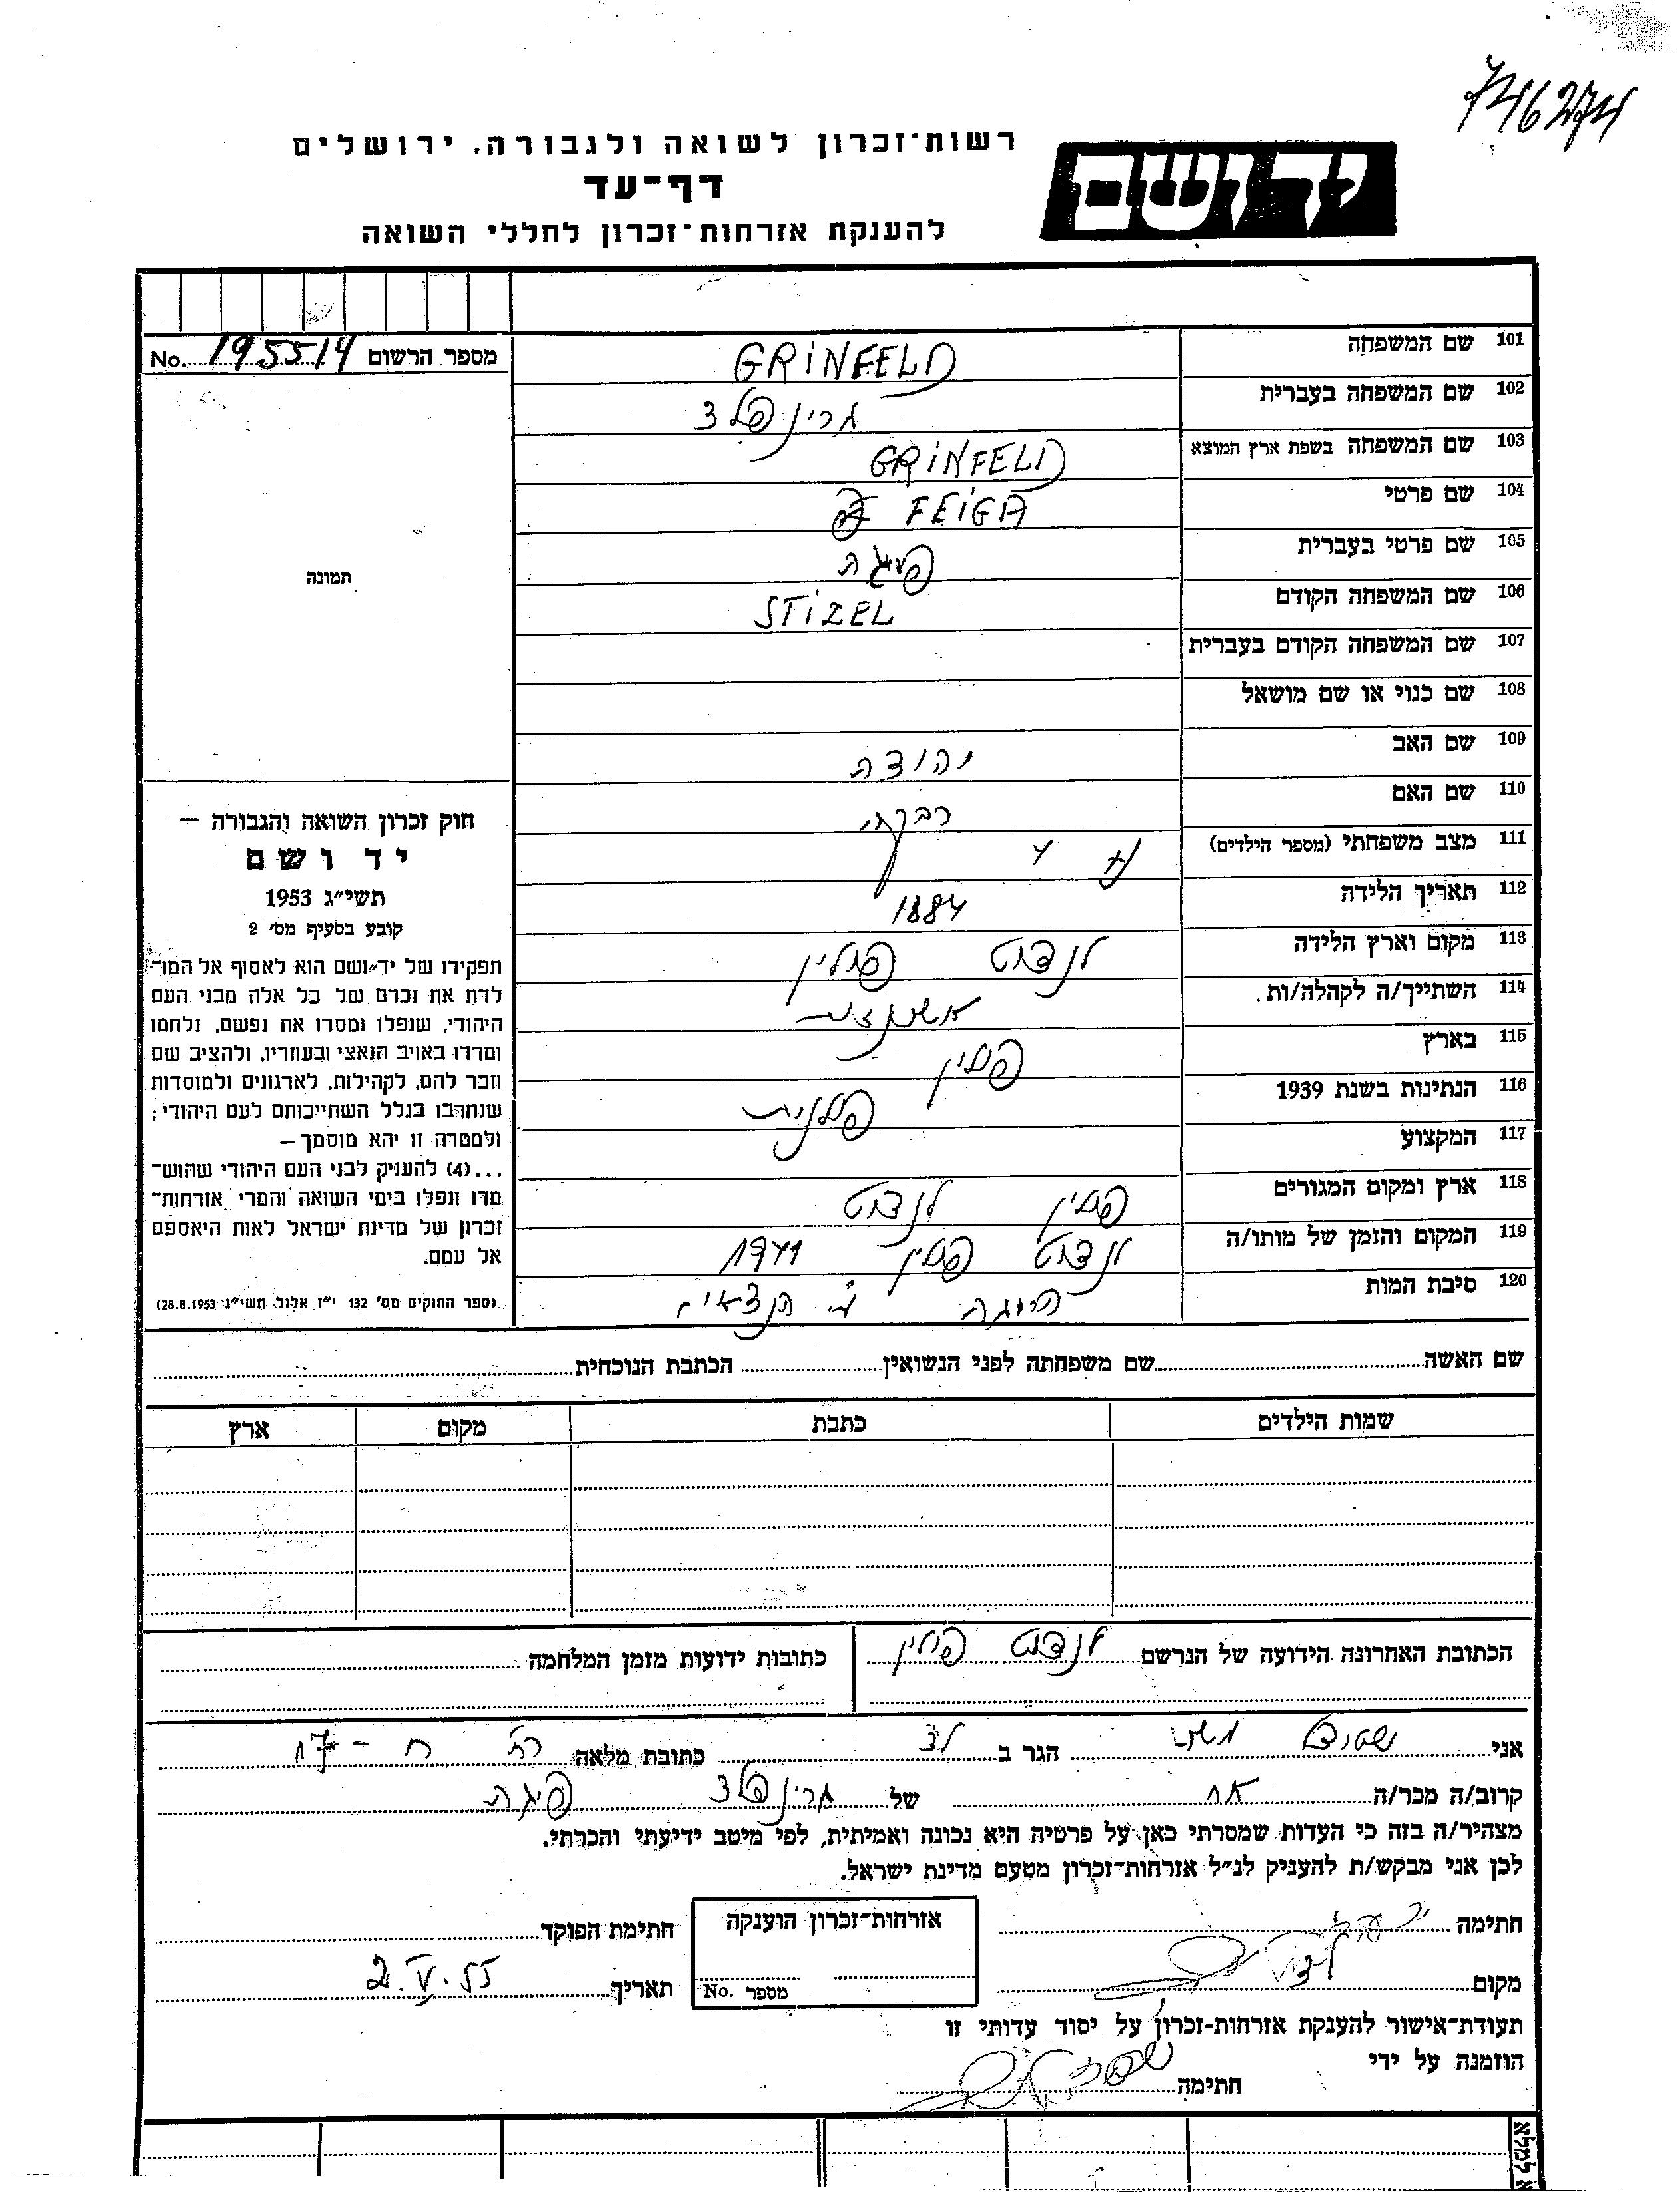 746274
רשות־זכרון לשואה ולגבורה, ירושלים
יד ושם
דף־עד
להענקת אזרחות־זכרון לחללי השואה
101 שם המשפחה GRINFELD
מספר הרשום No. 195514
102 שם המשפחה בעברית גרינפלד
103 שם המשפחה בשפת ארץ המוצא GRINFELD
104 שם פרטי FEIGA
105 שם פרטי בעברית פיגה
תמונה
106 שם המשפחה הקודם STIZEL
107 שם המשפחה הקודם בעברית
108 שם כנוי או שם מושאל
109 שם האב יהודה
110 שם האם רבקה
111 מצב משפחתי (מספר הילדים) 4
112 תאריך הלידה 1884
113 מקום וארץ הלידה פולין
114 השתייך/ה לקהלה/ות. אשכנזית
115 בארץ פולין
116 הנתינות בשנת 1939 פולנית
117 המקצוע
118 ארץ ומקום המגורים פולין
119 המקום והזמן של מותו/ה פולין 1941
120 סיבת המות הרוגה ע״י הנצאים
חוק זכרון השואה והגבורה –
יד ושם
תשי״ג 1953
קובע בסעיף מס׳ 2
תפקידו של יד־ושם הוא לאסוף אל המו־
לדת את זכרם של כל אלה מבני העם
היהודי, שנפלו ומסרו את נפשם, נלחמו
ומרדו באויב הנאצי ובעוזריו, ולהציב שם
וזכר להם, לקהילות, לארגונים ולמוסדות
שנחרבו בגלל השתייכותם לעם היהודי;
ולמטרה זו יהא מוסמך –
...(4) להעניק לבני העם היהודי שהוש־
מדו ונפלו בימי השואה והמרי אזרחות־
זכרון של מדינת ישראל לאות היאספם
אל עמם.
(ספר החוקים מס׳ 132 י״ז אלול תשי״ג 28.8.1953)
שם האשה שם משפחתה לפני הנשואין הכתבת הנוכחית
שמות הילדים כתבת מקום ארץ
הכתובת האחרונה הידועה של הנרשם פולין
כתובות ידועות מזמן המלחמה
אני הגר ב לד כתובת מלאה ח - 17
קרוב/ה מכר/ה אח של גרינפלד פיגה
מצהיר/ה בזה כי העדות שמסרתי כאן על פרטיה היא נכונה ואמיתית, לפי מיטב ידיעתי והכרתי.
לכן אני מבקש/ת להעניק לנ״ל אזרחות־זכרון מטעם מדינת ישראל.
חתימה
אזרחות־זכרון הוענקה
חתימת הפוקד
מקום
מספר No.
תאריך 2.V.55
תעודת־אישור להענקת אזרחות-זכרון על יסוד עדותי זו
הוזמנה על ידי
חתימה